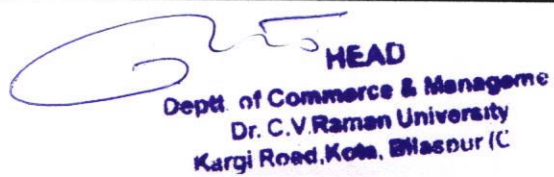 HEAD
Deptt. of Commerce & Manageme
Dr. C.V.Raman University
Kargi Road,Kota, Bilaspur (C